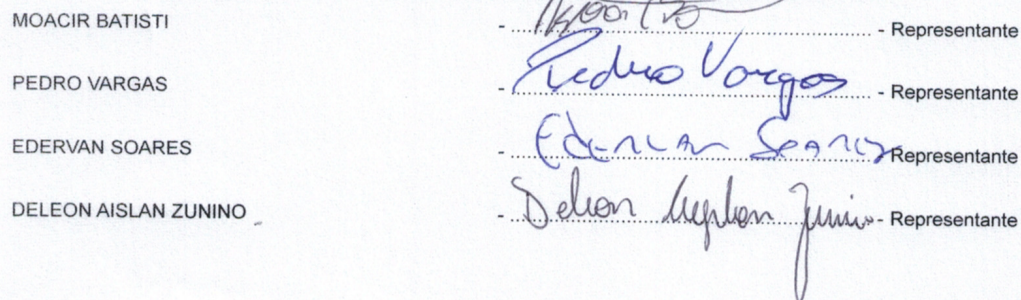 MOACIR BATISTI - - Representante
PEDRO VARGAS - Pedro Vargas - Representante
EDERVAN SOARES - Edervan Soares - Representante
DELEON AISLAN ZUNINO - Deleon Zunino - Representante